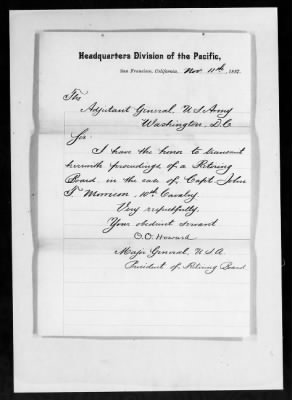 Headquarters Division of the Pacific,
San Francisco, California, Nov. 11th, 1887.
The
Adjutant General, U S Army
Washington, D.C.
Sir:
I have the honor to transmit
herewith proceedings of a Retiring
Board in the case of Capt. John
T. Morrison, 10th Cavalry
Very respectfully,
Your obedient servant
O. O. Howard
Major General, U S A.
President of Retiring Board